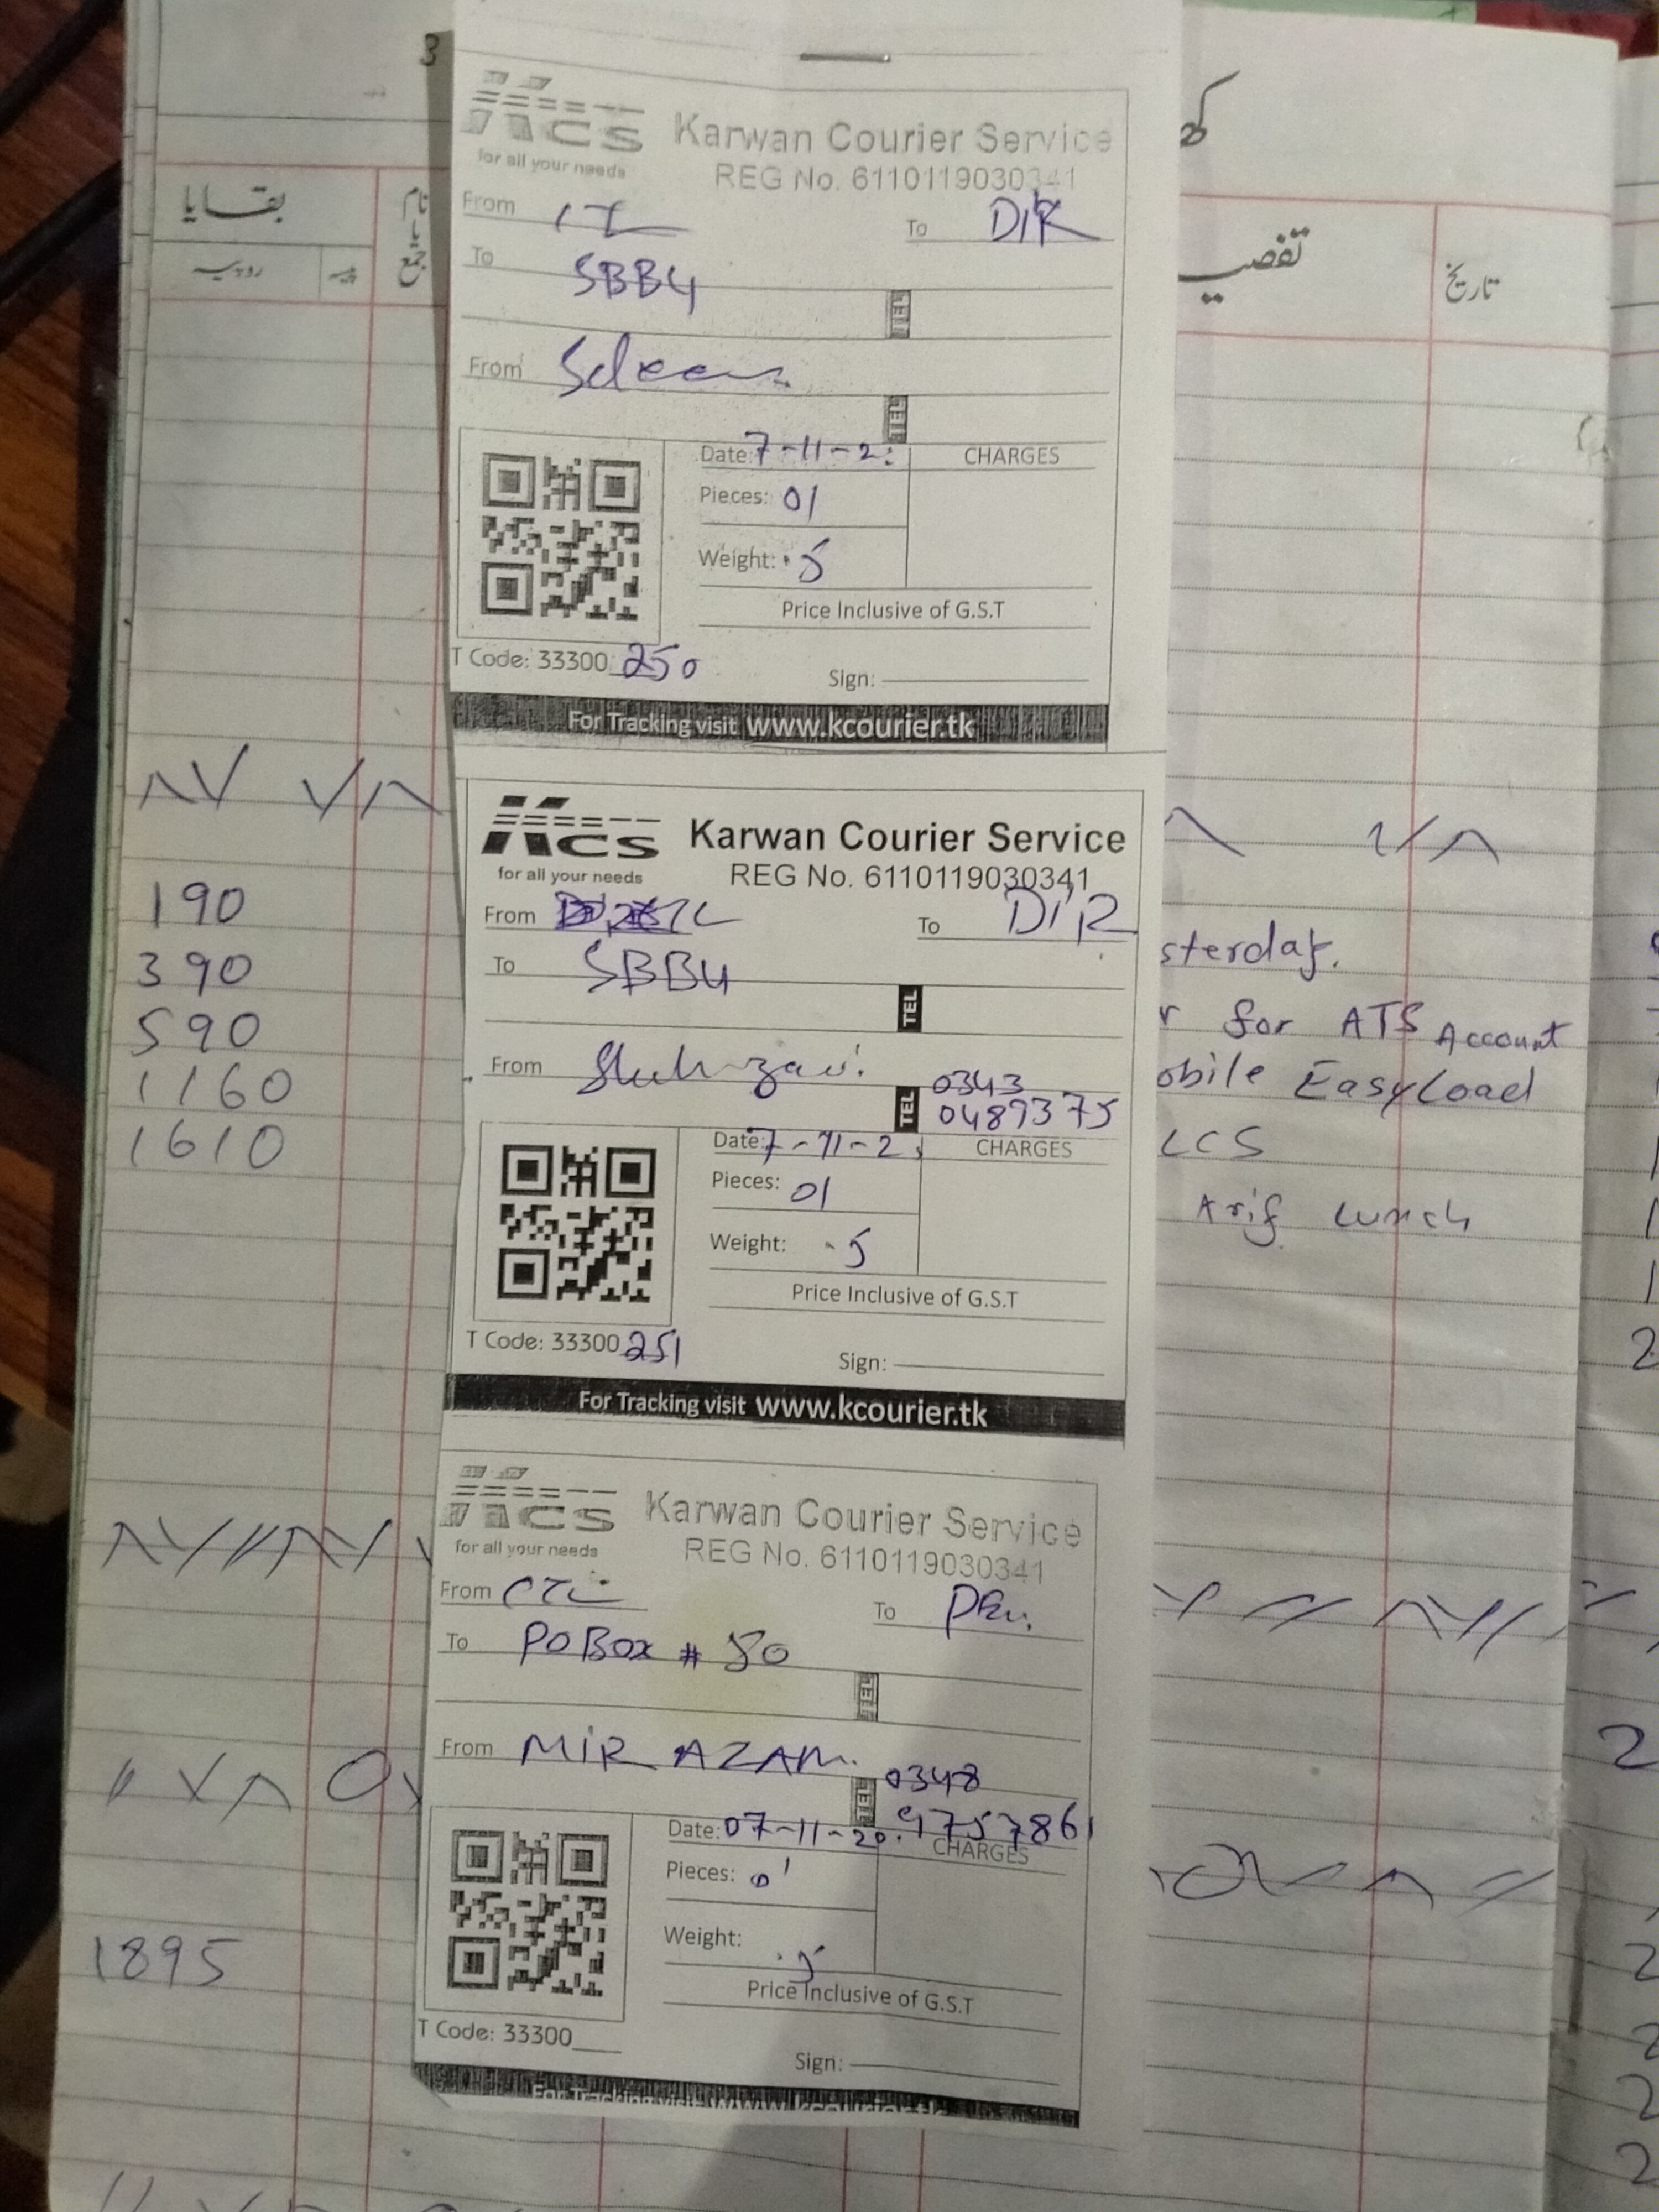 3
KCS
for all your needs
Karwan Courier Service
REG No. 6110119030341
From
To DIR
To SBBU
TEL
From
TEL
Date: 7-11-2
CHARGES
Pieces: 01
Weight: .5
Price Inclusive of G.S.T
T Code: 33300 250
Sign:
For Tracking visit www.kcourier.tk
KCS
for all your needs
Karwan Courier Service
REG No. 6110119030341
From
To DIR
To SBBU
TEL
From
TEL 0343
0489375
Date: 7-11-2
CHARGES
Pieces: 01
Weight: .5
Price Inclusive of G.S.T
T Code: 33300 251
Sign:
For Tracking visit www.kcourier.tk
KCS
for all your needs
Karwan Courier Service
REG No. 6110119030341
From
To
To PO Box # 50
TEL
From MIR AZAM.
TEL 0348
9757861
Date: 07-11-20
CHARGES
Pieces: 01
Weight: .5
Price Inclusive of G.S.T
T Code: 33300
Sign:
For Tracking visit www.kcourier.tk
بقایا
نام یا جمع
روپیہ
پیسہ
تاریخ
190
390
590
1160
1610
1895
sterday.
r for ATS Account
obile EasyLoad
LCS
Arif Lunch